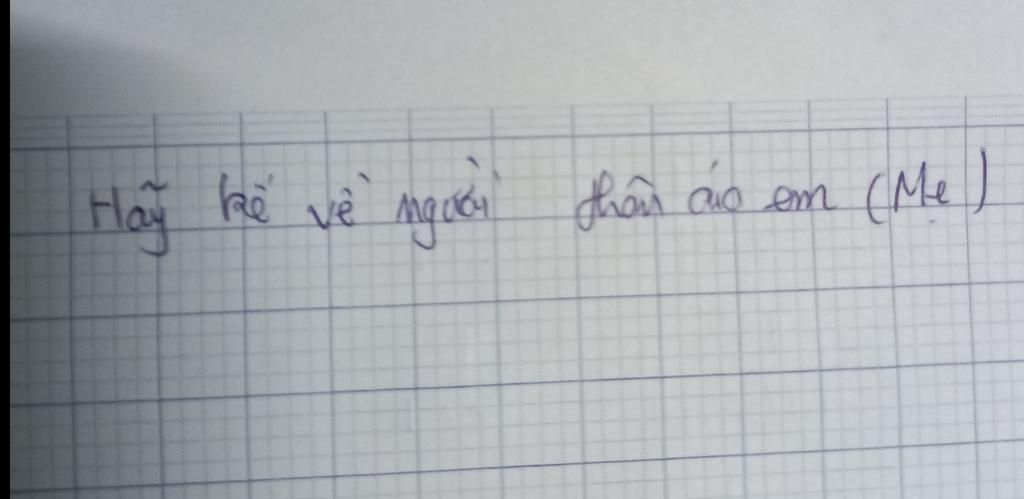 Hãy kể về người thân của em (Mẹ)